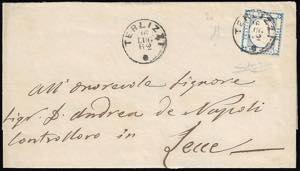 TERLIZZI
16
LUG
62
TERLIZZI
LUG
62
All' Onorevole Signore
Sigr. D. Andrea de Napoli
Controlloro in
Lecce